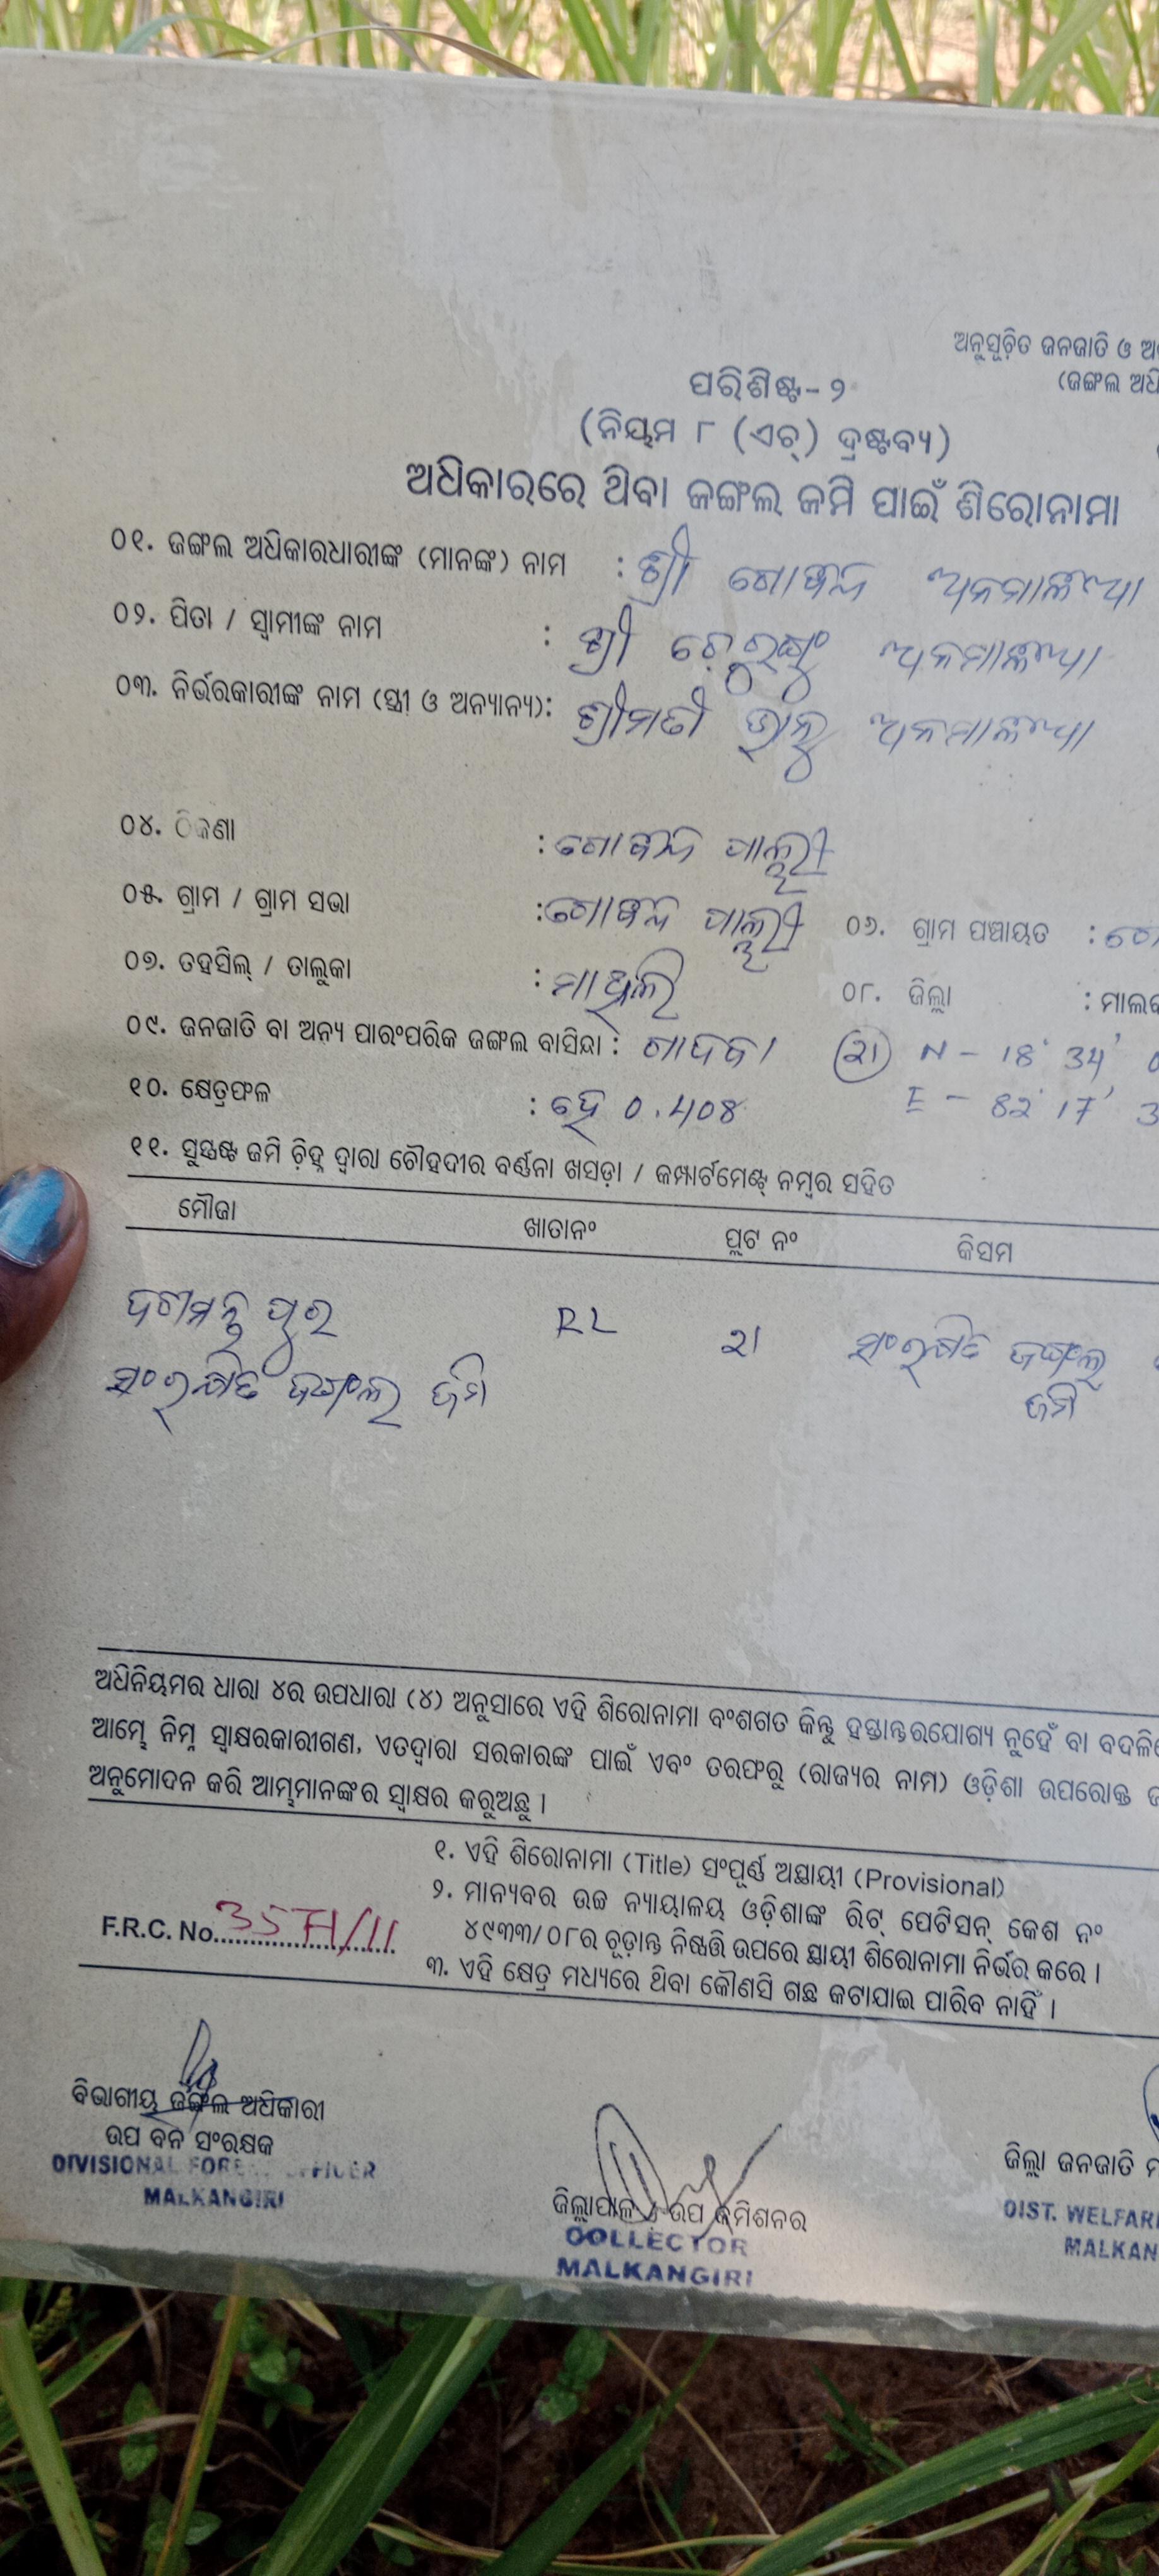 ଅନୁସୂଚିତ ଜନଜାତି ଓ
(ଜଙ୍ଗଲ
ପରିଶିଷ୍ଟ- ୨
(ନିୟମ ୮ (ଏଚ୍) ଦ୍ରଷ୍ଟବ୍ୟ)
ଅଧିକାରରେ ଥିବା ଜଙ୍ଗଲ ଜମି ପାଇଁ ଶିରୋନାମା
୦୧. ଜଙ୍ଗଲ ଅଧିକାରଧାରୀଙ୍କ (ମାନଙ୍କ) ନାମ : ଶ୍ରୀ
୦୨. ପିତା / ସ୍ୱାମୀଙ୍କ ନାମ : ଶ୍ରୀ
୦୩. ନିର୍ଭରକାରୀଙ୍କ ନାମ (ସ୍ତ୍ରୀ ଓ ଅନ୍ୟାନ୍ୟ): ଶ୍ରୀମତୀ
୦୪. ଠିକଣା :
୦୫. ଗ୍ରାମ / ଗ୍ରାମ ସଭା : ୦୬. ଗ୍ରାମ ପଞ୍ଚାୟତ :
୦୭. ତହସିଲ୍ / ତାଲୁକା : ମାଥିଲି ୦୮. ଜିଲ୍ଲା :
୦୯. ଜନଜାତି ବା ଅନ୍ୟ ପାରଂପରିକ ଜଙ୍ଗଲ ବାସିନ୍ଦା : ଗାଦବା N - 18° 34'
୧୦. କ୍ଷେତ୍ରଫଳ : ହେ 0.408 E - 82° 17'
୧୧. ସୁସ୍ପଷ୍ଟ ଜମି ଚିହ୍ନ ଦ୍ୱାରା ଚୌହଦୀର ବର୍ଣ୍ଣନା ଖସଡ଼ା / କମ୍ପାର୍ଟମେଣ୍ଟ୍ ନମ୍ବର ସହିତ
ମୌଜା ଖାତାନଂ ପ୍ଲଟ ନଂ କିସମ
RL ସଂରକ୍ଷିତ ଜଙ୍ଗଲ
ସଂରକ୍ଷିତ ଜଙ୍ଗଲ ଜମି ଜମି
ଅଧିନିୟମର ଧାରା ୪ର ଉପଧାରା (୪) ଅନୁସାରେ ଏହି ଶିରୋନାମା ବଂଶଗତ କିନ୍ତୁ ହସ୍ତାନ୍ତରଯୋଗ୍ୟ ନୁହେଁ ବା
ଆମ୍ଭେ ନିମ୍ନ ସ୍ୱାକ୍ଷରକାରୀଗଣ, ଏତଦ୍ୱାରା ସରକାରଙ୍କ ପାଇଁ ଏବଂ ତରଫରୁ (ରାଜ୍ୟର ନାମ) ଓଡ଼ିଶା ଉପରୋକ୍ତ
ଅନୁମୋଦନ କରି ଆମ୍ଭମାନଙ୍କର ସ୍ୱାକ୍ଷର କରୁଅଛୁ ।
୧. ଏହି ଶିରୋନାମା (Title) ସଂପୂର୍ଣ୍ଣ ଅସ୍ଥାୟୀ (Provisional)
୨. ମାନ୍ୟବର ଉଚ୍ଚ ନ୍ୟାୟାଳୟ ଓଡ଼ିଶାଙ୍କ ରିଟ୍ ପେଟିସନ୍ କେଶ ନଂ
F.R.C. No. ୪୯୩୩/୦୮ର ଚୂଡ଼ାନ୍ତ ନିଷ୍ପତ୍ତି ଉପରେ ସ୍ଥାୟୀ ଶିରୋନାମା ନିର୍ଭର କରେ ।
୩. ଏହି କ୍ଷେତ୍ର ମଧ୍ୟରେ ଥିବା କୌଣସି ଗଛ କଟାଯାଇ ପାରିବ ନାହିଁ ।
ବିଭାଗୀୟ ଜଙ୍ଗଲ ଅଧିକାରୀ
ଉପ ବନ ସଂରକ୍ଷକ
DIVISIONAL FOREST OFFICER
MALKANGIRI
ଜିଲ୍ଲାପାଳ ଓ ଉପ କମିଶନର
COLLECTOR
MALKANGIRI
ଜିଲ୍ଲା ଜନଜାତି
DIST. WELFARE